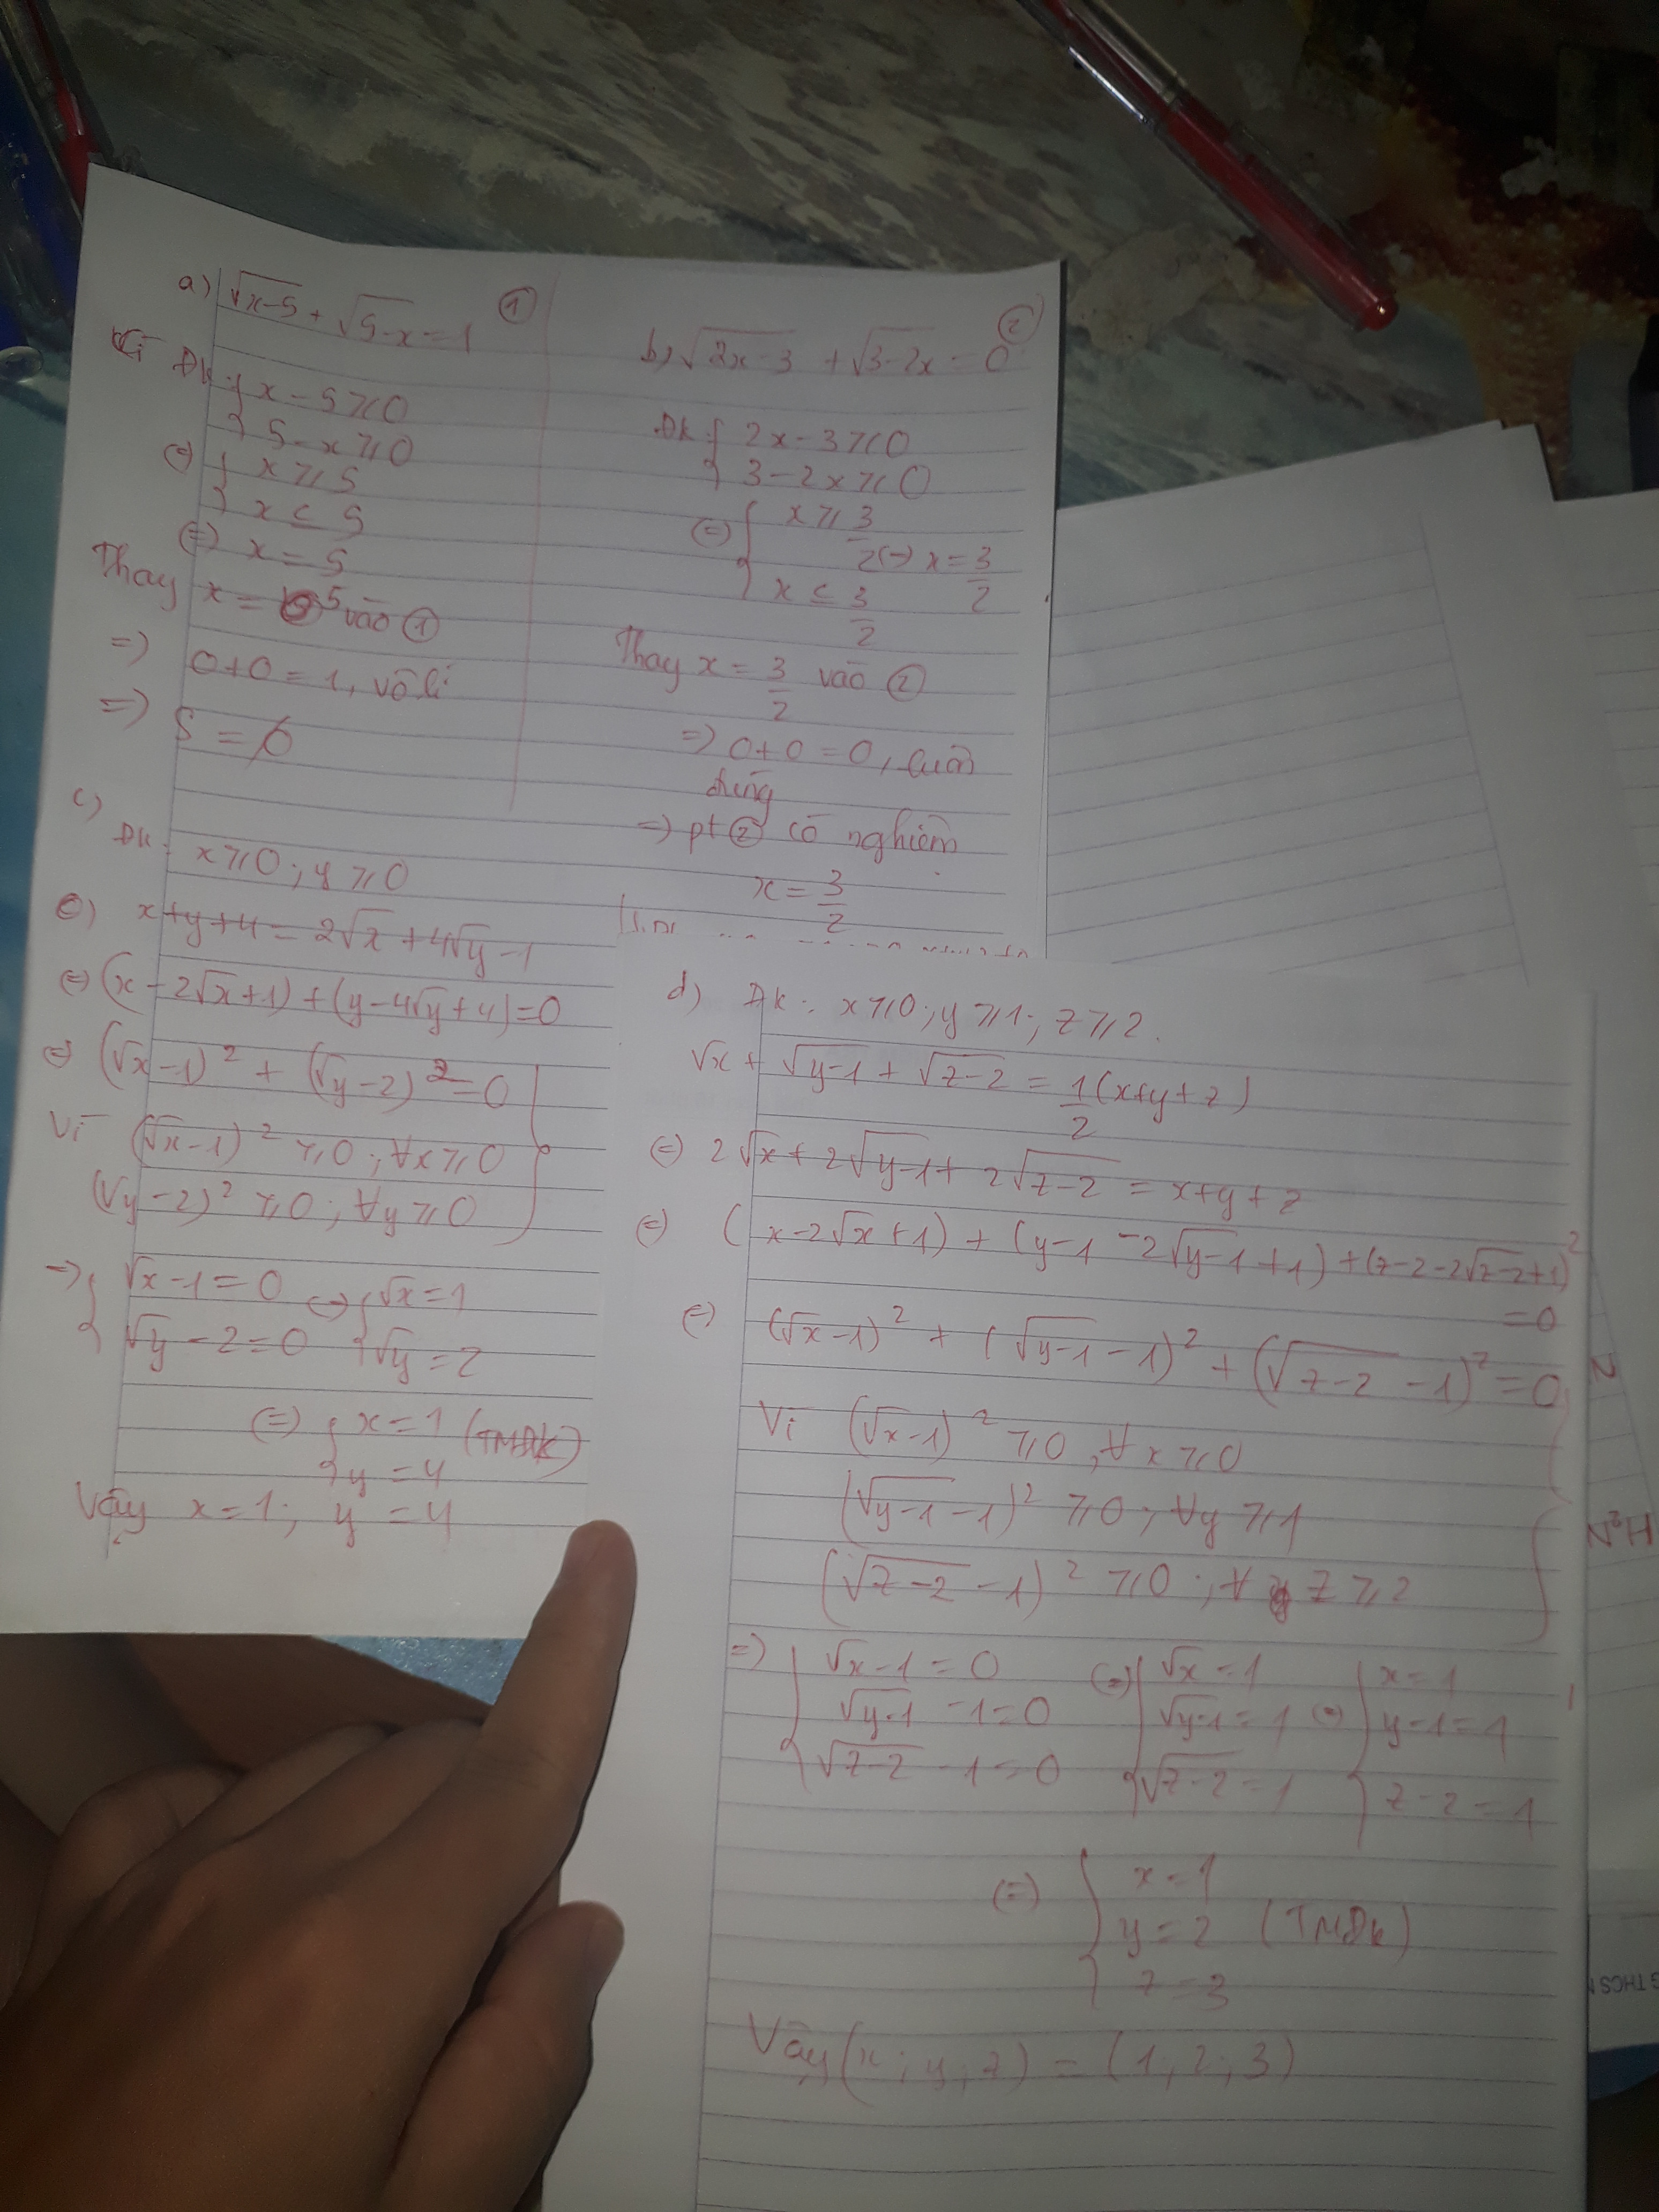 a) √(x-5) + √(5-x) = 1 ①
Vì ĐK { x - 5 ⩾ 0
5 - x ⩾ 0
(=) { x ⩾ 5
x ≤ 5
(=) x = 5
Thay x = 5 vào ①
=) 0+0 = 1, vô lí
=) S = ∅
b, √(2x-3) + √(3-2x) = 0 ②
ĐK { 2x - 3 ⩾ 0
3 - 2x ⩾ 0
(=) { x ⩾ 3/2 (=) x = 3/2
x ≤ 3/2
Thay x = 3/2 vào ②
=) 0+0 = 0, luôn
đúng
=) pt ② có nghiệm
x = 3/2
c)
ĐK: x ⩾ 0 ; y ⩾ 0
(=) x+y+4 = 2√x + 4√y - 1
(=) (x - 2√x + 1) + (y - 4√y + 4) = 0
(=) (√x - 1)² + (√y - 2)² = 0
Vì (√x - 1)² ⩾ 0 ; ∀x ⩾ 0
(√y - 2)² ⩾ 0 ; ∀y ⩾ 0
=) { √x - 1 = 0 (=) { √x = 1
√y - 2 = 0 √y = 2
(=) { x = 1 (TMĐK)
y = 4
Vậy x = 1 ; y = 4
d) ĐK : x ⩾ 0 ; y ⩾ 1 ; z ⩾ 2.
√x + √(y-1) + √(z-2) = 1/2 (x+y+z)
(=) 2√x + 2√(y-1) + 2√(z-2) = x+y+z
(=) (x - 2√x + 1) + (y-1 - 2√(y-1) + 1) + (z-2 - 2√(z-2) + 1)²
= 0
(=) (√x - 1)² + (√(y-1) - 1)² + (√(z-2) - 1)² = 0
Vì (√x - 1)² ⩾ 0 , ∀ x ⩾ 0
(√(y-1) - 1)² ⩾ 0 ; ∀y ⩾ 1
(√(z-2) - 1)² ⩾ 0 ; ∀ z ⩾ 2
=) { √x - 1 = 0 (=) { √x = 1 (=) { x = 1
√(y-1) - 1 = 0 √(y-1) = 1 y - 1 = 1
√(z-2) - 1 = 0 √(z-2) = 1 z - 2 = 1
(=) { x = 1
y = 2 (TMĐK)
z = 3
Vậy (x ; y ; z) = (1 ; 2 ; 3)
N
H₂N
THCS